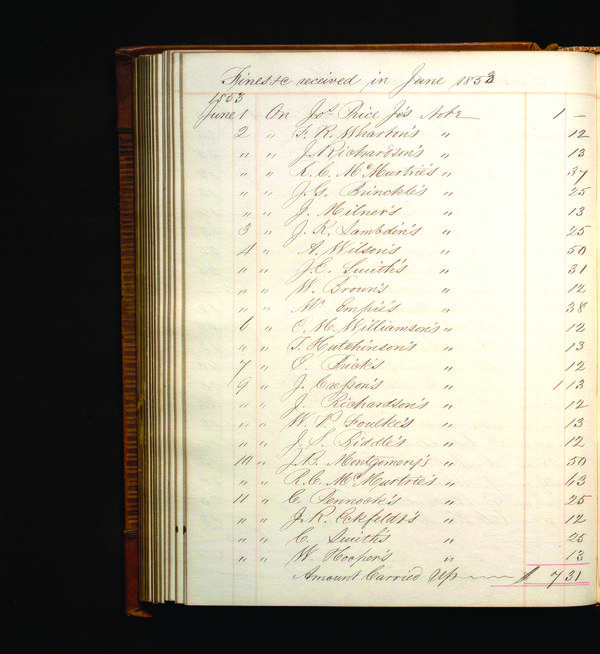 Fines &c received in June 1853
1853
June 1 On Jos. Price Jr's Note 1 –
2 " F. R. Wharton's " 12
" " J. Richardson's " 13
" " R. C. McMurtrie's " 37
" " J. G. Brinckle's " 25
" " J. Milner's " 13
3 " J. R. Lambdin's " 25
4 " A. Wilson's " 50
" " J. C. Smith's " 31
" " W. Brown's " 12
" " Mr Empie's " 38
6 " C. M. Williamson's " 12
" " T. Hutchinson's " 13
7 " E. Brick's " 12
9 " J. Caſson's " 1 13
" " J. Richardson's " 12
" " W. P. Foulke's " 13
" " J. S. Biddle's " 12
10 " J. B. Montgomery's " 50
" " R. C. McMurtrie's " 63
11 " C. Pennock's " 25
" " J. R. Eckfeldt's " 12
" " C. Smith's " 25
" " W. Hooper's " 13
Amount Carried Up $ 7 31